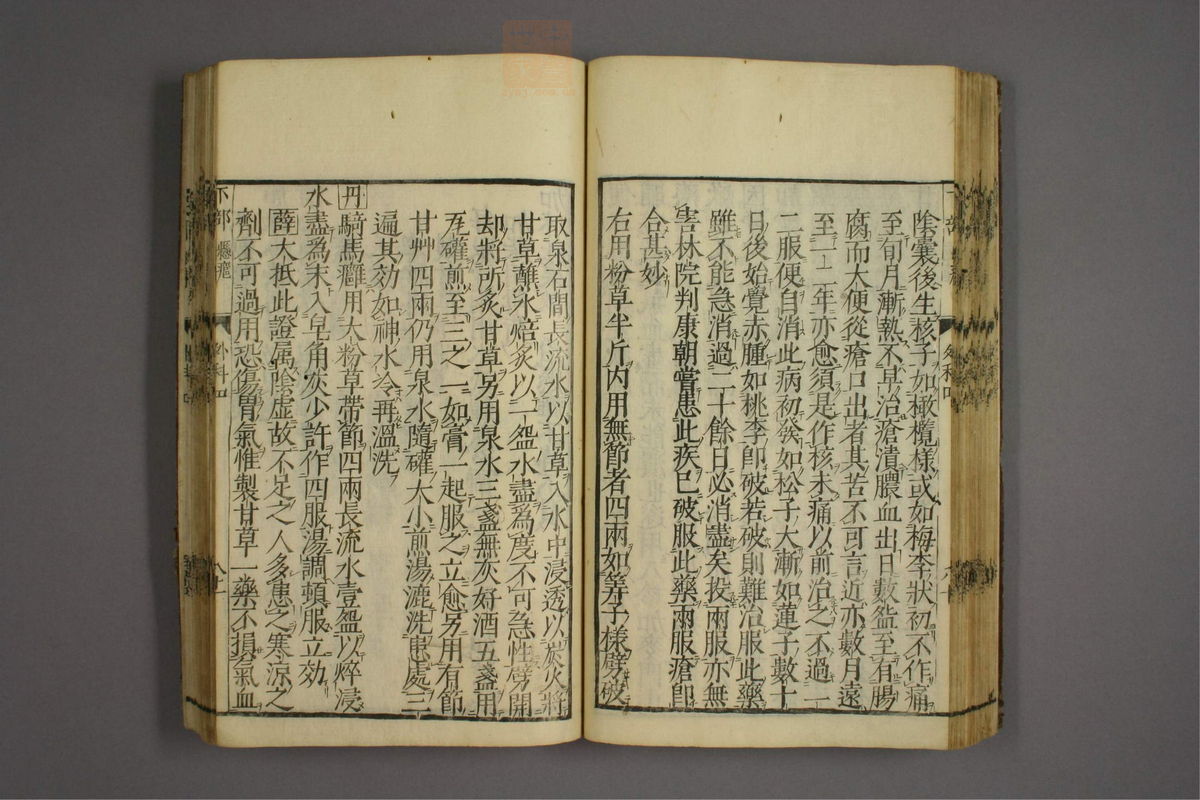 陰囊後生核子如橄欖樣或如梅李狀初不作痛
至旬月漸熟不早治瘡潰膿血出日數盌至有腸
腐而大便從瘡口出者其苦不可言近亦數月遠
至一二年亦愈須是作核未痛以前治之不過一
二服便自消此病初發如松子大漸如蓮子數十
日後始覺赤腫如桃李卽破若破則難治服此藥
雖不能急消過二十餘日必消盡矣投兩服亦無
害林院判康朝嘗患此疾已破服此藥兩服瘡卽
合甚妙
右用粉草半斤内用無節者四兩如筭子樣劈破
取泉石間長流水以甘草入水中浸透以炭火將
甘草蘸水焙炙以一盌水盡爲度不可急性劈開
却將所炙甘草另用泉水三盞無灰好酒五盞用
瓦礶煎至三之一如膏一起服之立愈另用有節
甘艸四兩仍用泉水隨礶大小煎湯漉洗患處三
遍其効如神水冷再溫洗
丹騎馬癰用大粉草帶節四兩長流水壹盌以焠浸
水盡爲末入皂角灰少許作四服湯調頓服立効
薛大抵此證属陰虛故不足之人多患之寒涼之
劑不可過用恐傷胃氣惟製甘草一藥不損氣血
下部 懸癰 外科四